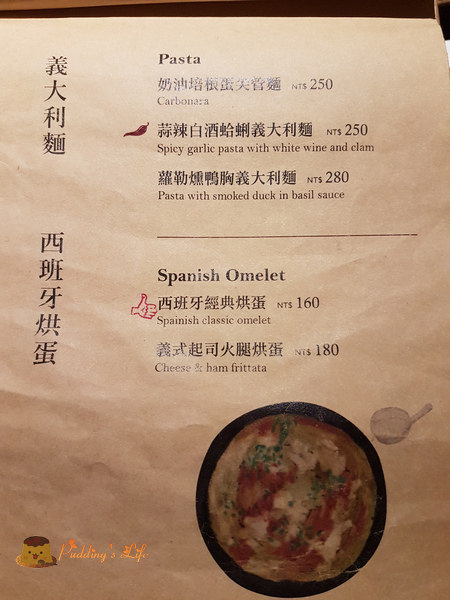 義大利麵
Pasta
奶油培根蛋尖管麵 NT$ 250
Carbonara
蒜辣白酒蛤蜊義大利麵 NT$ 250
Spicy garlic pasta with white wine and clam
蘿勒燻鴨胸義大利麵 NT$ 280
Pasta with smoked duck in basil sauce
西班牙烘蛋
Spanish Omelet
西班牙經典烘蛋 NT$ 160
Spainish classic omelet
義式起司火腿烘蛋 NT$ 180
Cheese & ham frittata
Pudding's Life